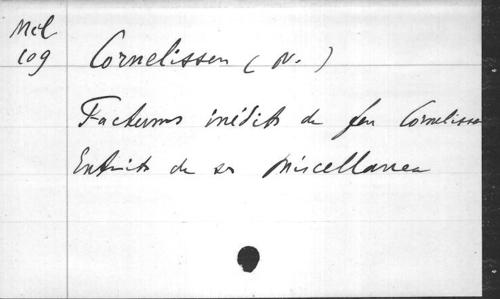 Mel
109
Cornelissen (N.)
Factums inédits de feu Cornelissen
Extraits de ses Miscellanea